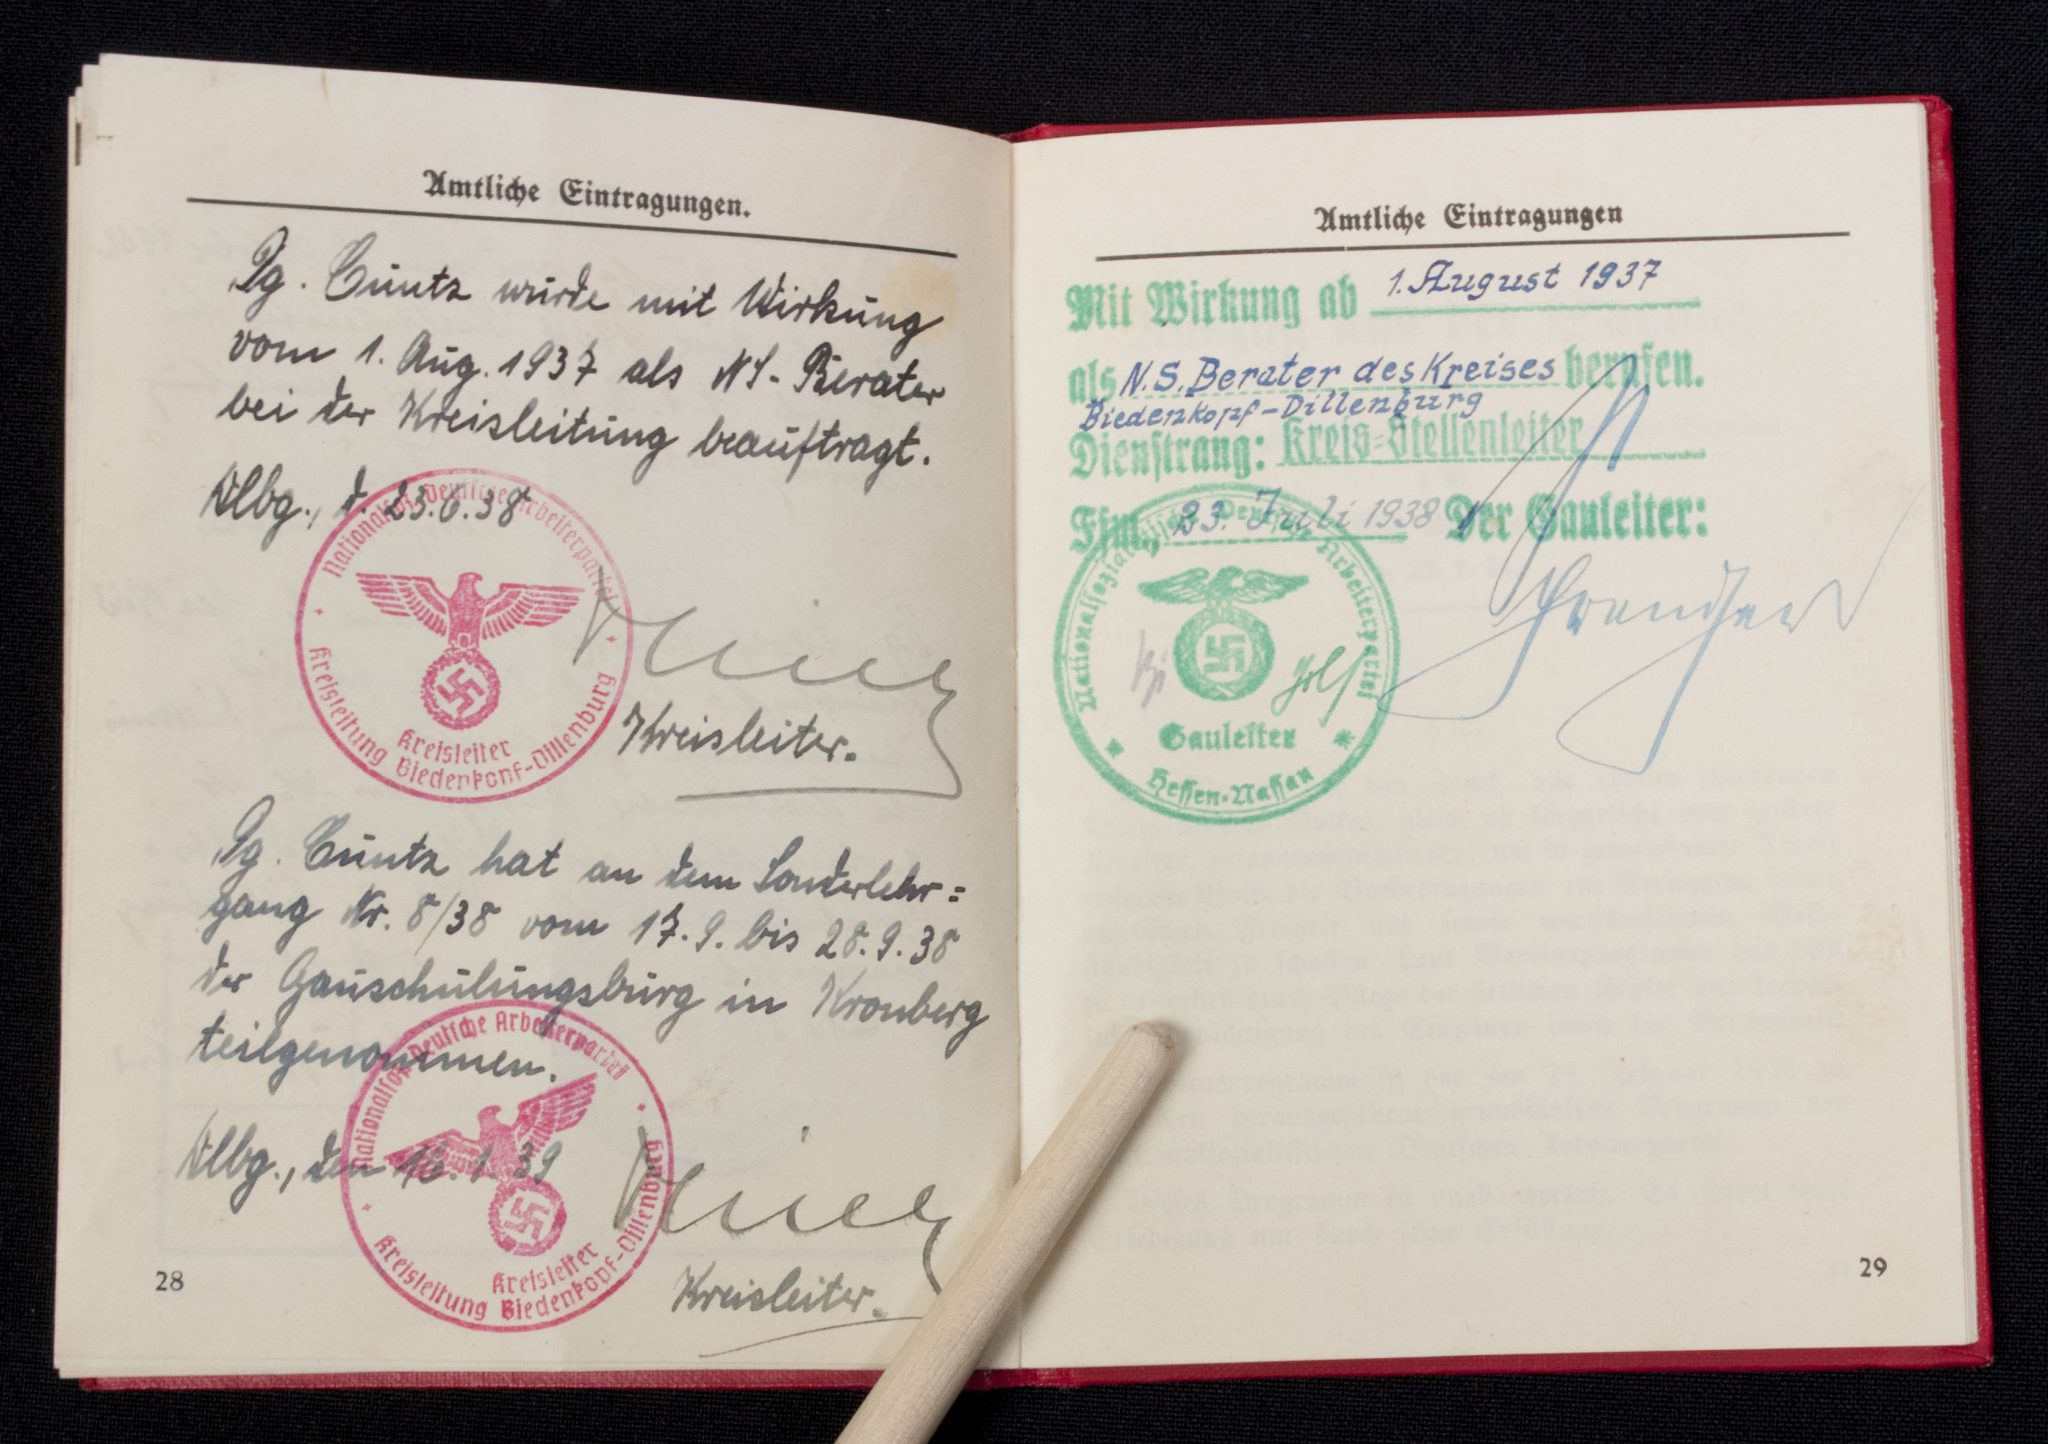 Amtliche Eintragungen.
Pg. Cuntz wurde mit Wirkung
vom 1. Aug. 1937 als NS-Berater
bei der Kreisleitung beauftragt.
Dlbg., d. 23.6.38
Nationalsoz. Deutsche Arbeiterpartei
Kreisleiter
Kreisleitung Biedenkopf-Dillenburg
Kreisleiter.
Pg. Cuntz hat an dem Sonderlehr=
gang Nr. 8/38 vom 17.9. bis 28.9.38
der Gauschulungsburg in Kronberg
teilgenommen.
Dlbg., den 16.1.39
Nationalsoz. Deutsche Arbeiterpartei
Kreisleiter
Kreisleitung Biedenkopf-Dillenburg
Kreisleiter.
28
Amtliche Eintragungen
Mit Wirkung ab 1. August 1937
als N.S. Berater des Kreises berufen.
Biedenkopf-Dillenburg
Dienstrang: Kreis=Stellenleiter
Ffm., 23. Juli 1938 Der Gauleiter:
Nationalsozialistische Deutsche Arbeiterpartei
Gauleiter
Hessen-Nassau
29